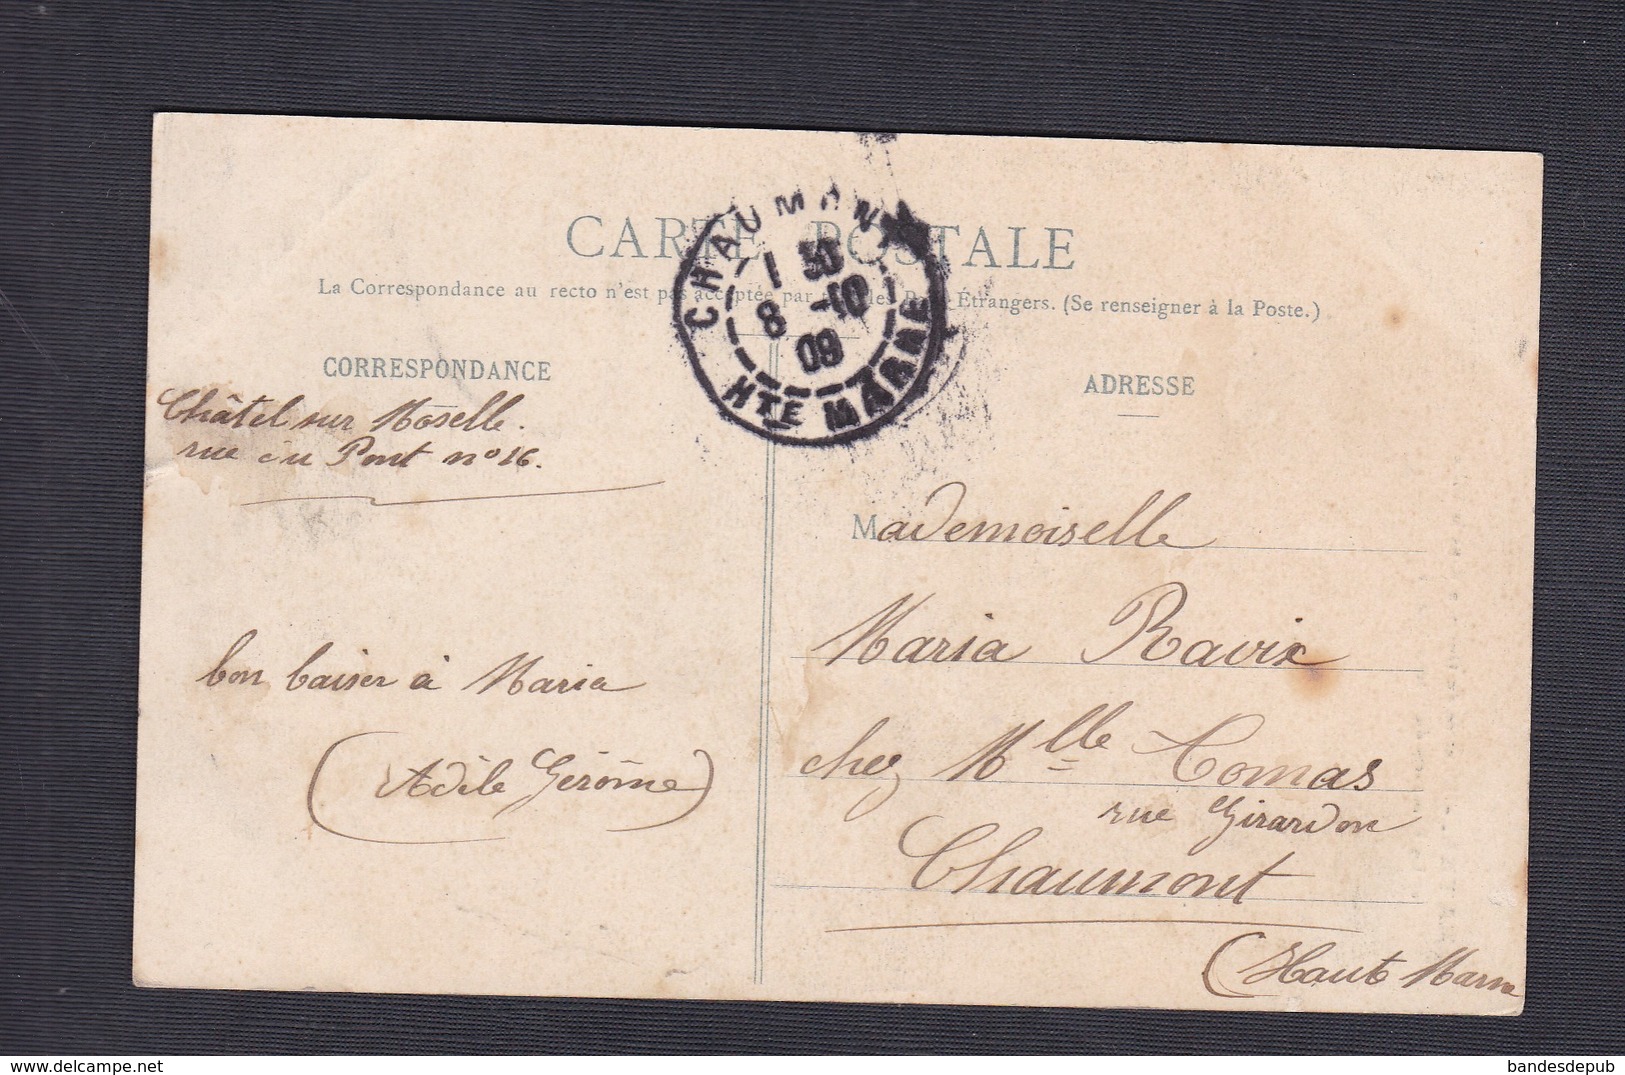 CARTE POSTALE
La Correspondance au recto n'est pas acceptée par les Étrangers. (Se renseigner à la Poste.)
CHAUMONT
1 30
8 -10
09
HTE MARNE
CORRESPONDANCE
Châtel sur Moselle.
rue du Pont no 16.
bon baiser à Maria
(Adile Gérôme)
ADRESSE
Mademoiselle
Maria Ravix
chez Mlle Comas
rue Girardon
Chaumont
(Haute Marne
www.delcampe.net
bandesdepub